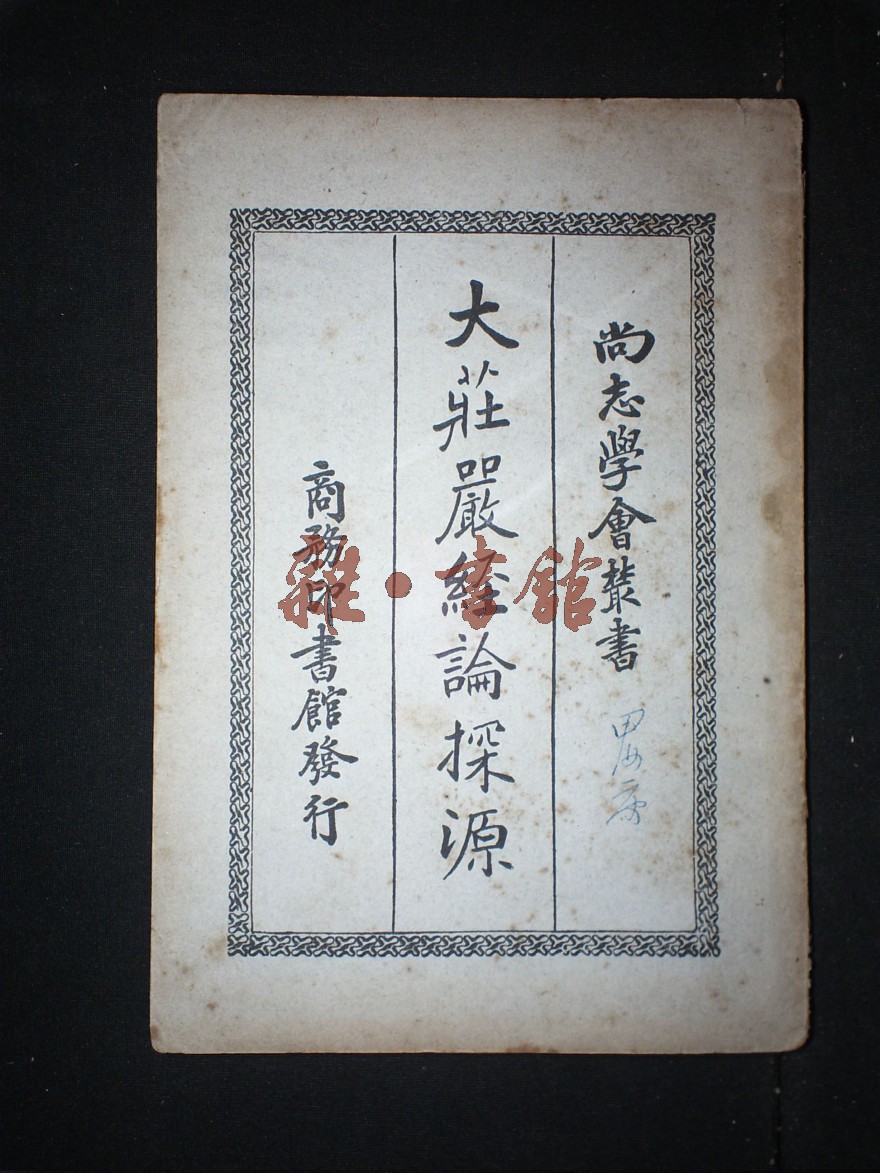 尚志學會叢書
大莊嚴經論探源
商務印書館發行
雜·書館